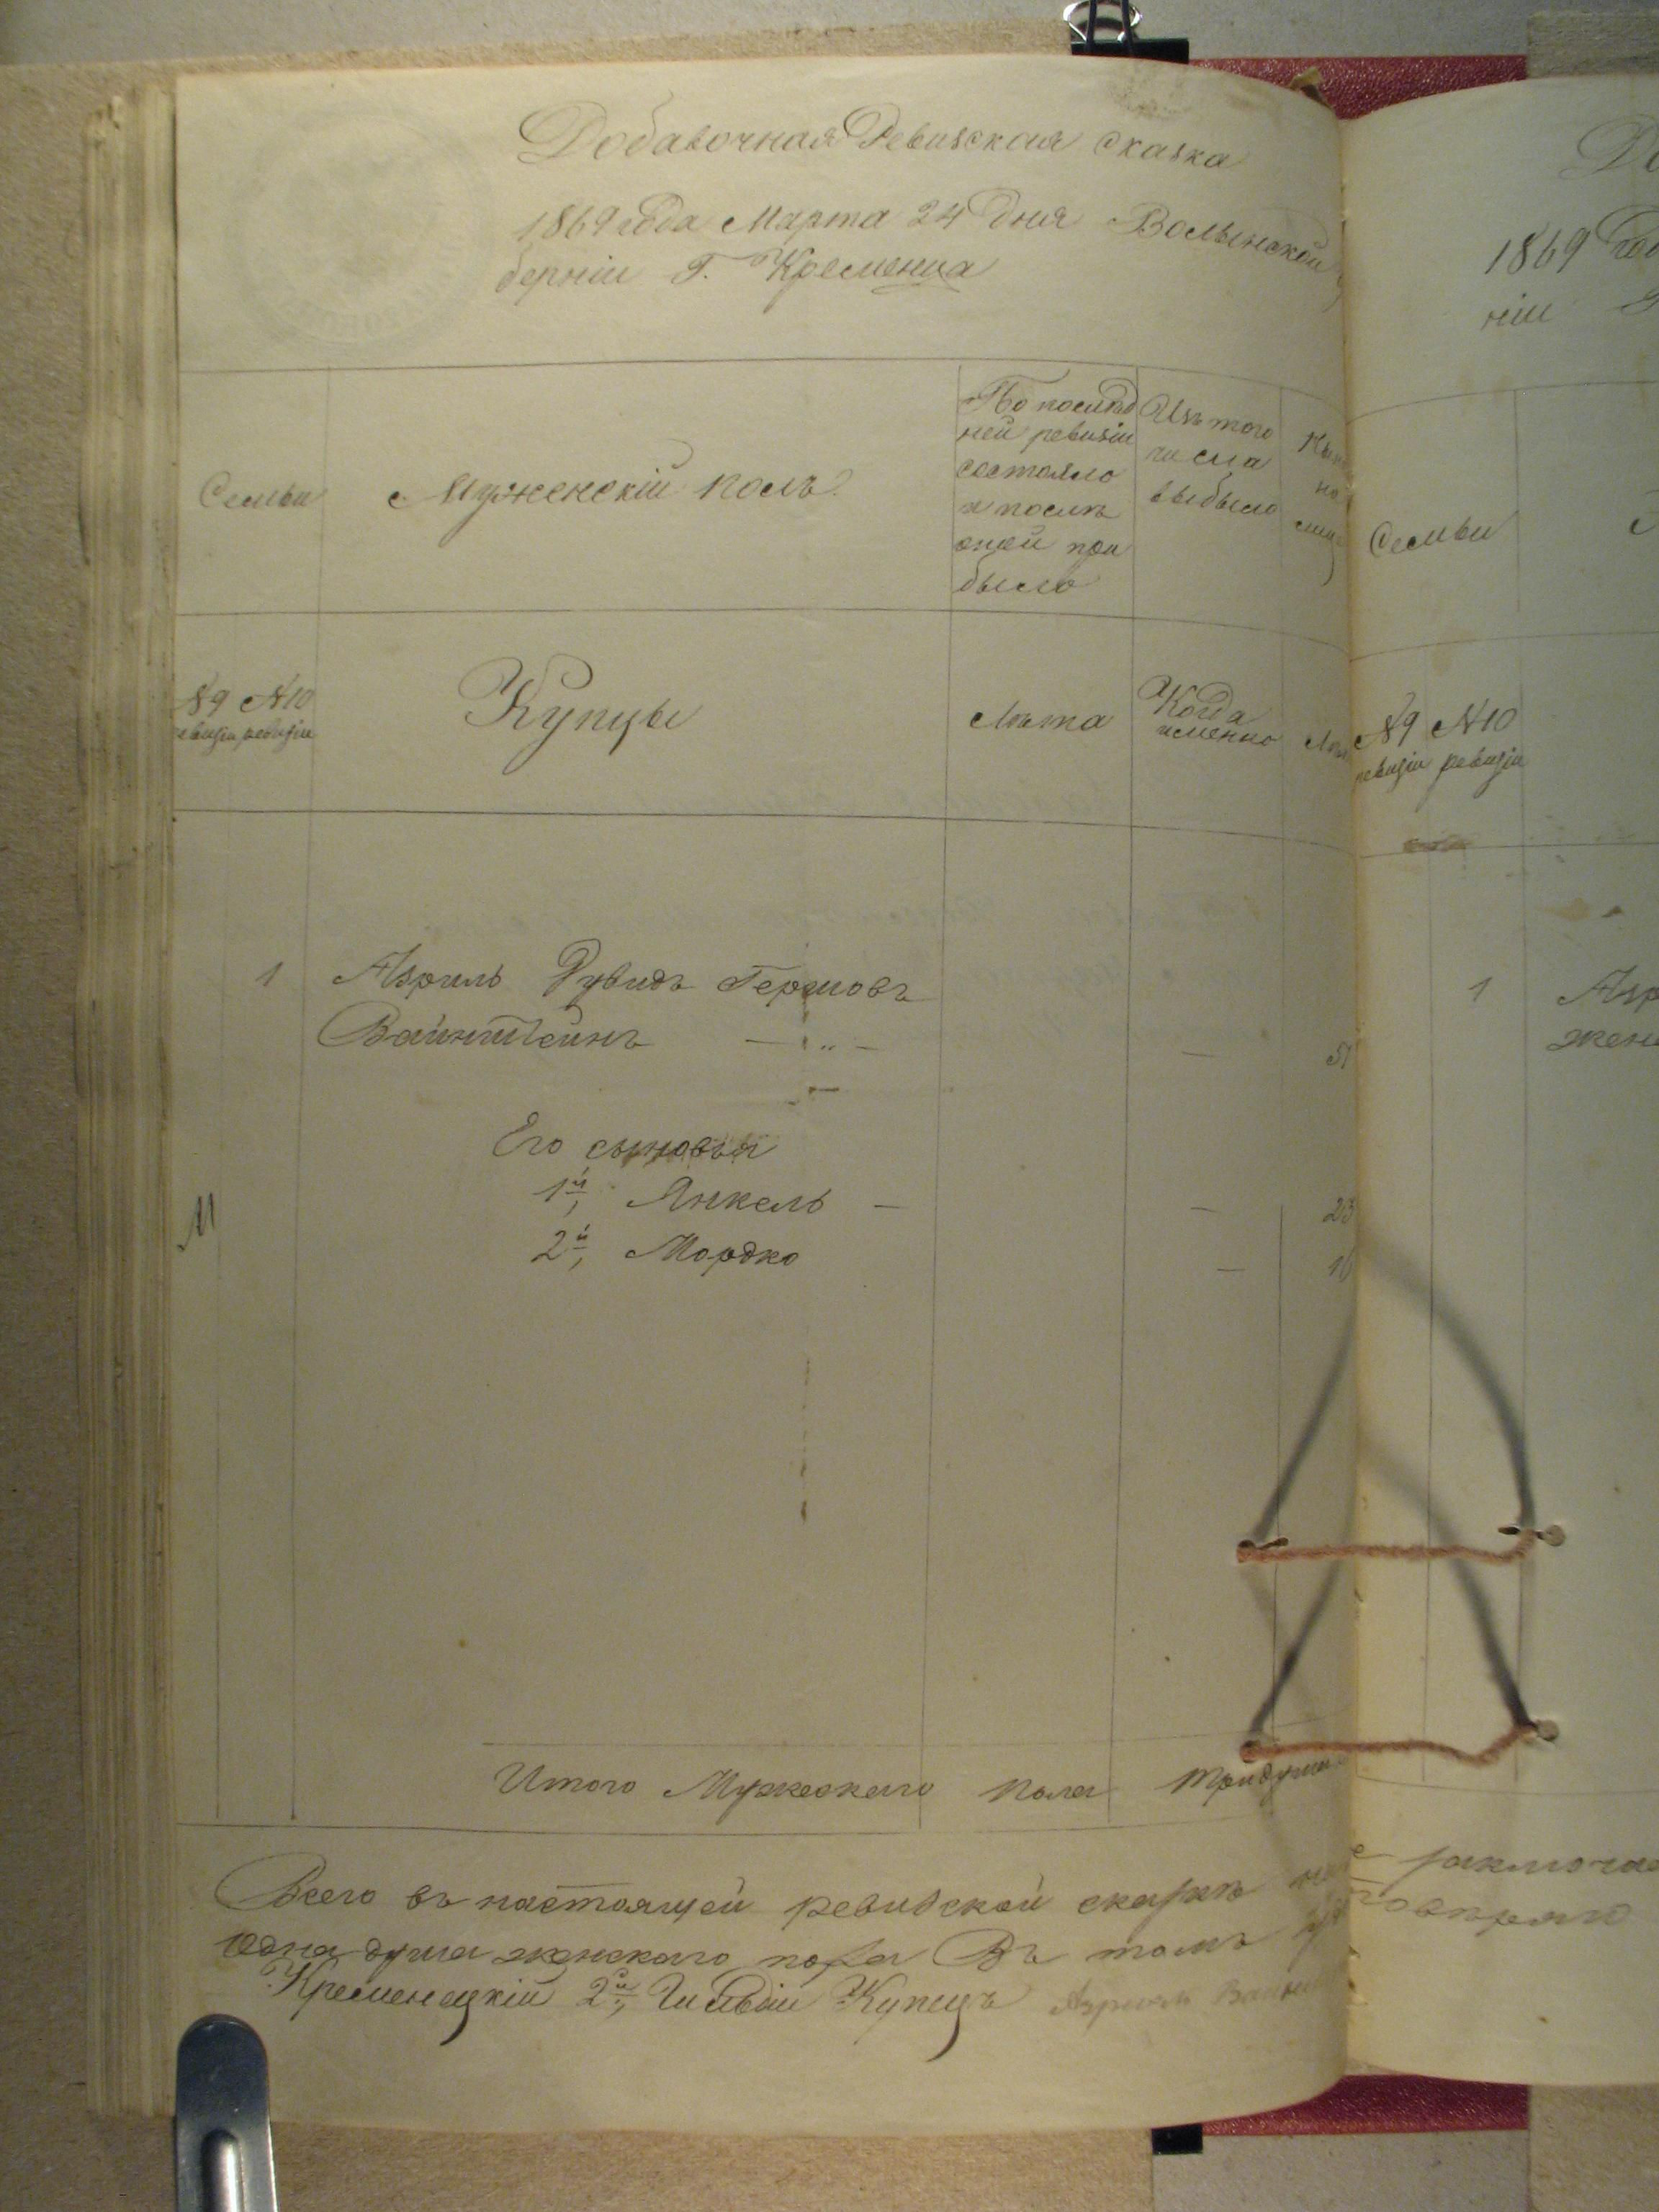 Добавочная Ревизская Сказка
1869 года Марта 24 дня Волынской
берніи Г. Кременца
Семьи
Мужескій полъ.
По послѣд
ней ревизіи
состояло
и послѣ
оной при
было
Изъ того
числа
выбыло
№9 №10
ревизіи ревизіи
Купцы
Лѣта
Когда
именно
1 Азриль Дувидъ Гершовъ
Вайнштейнъ — „ — — 51
Его сыновья
1й, Янкель — — 23
2й, Мордко —
Итого Мужескаго пола три души
Всего въ настоящей ревизской сказкѣ
одна душа женскаго пола Въ томъ
Кременецкій 2й, Гильдіи Купецъ Азриль
1869
ніи
Семьи
№9 №10
ревизіи ревизіи
1